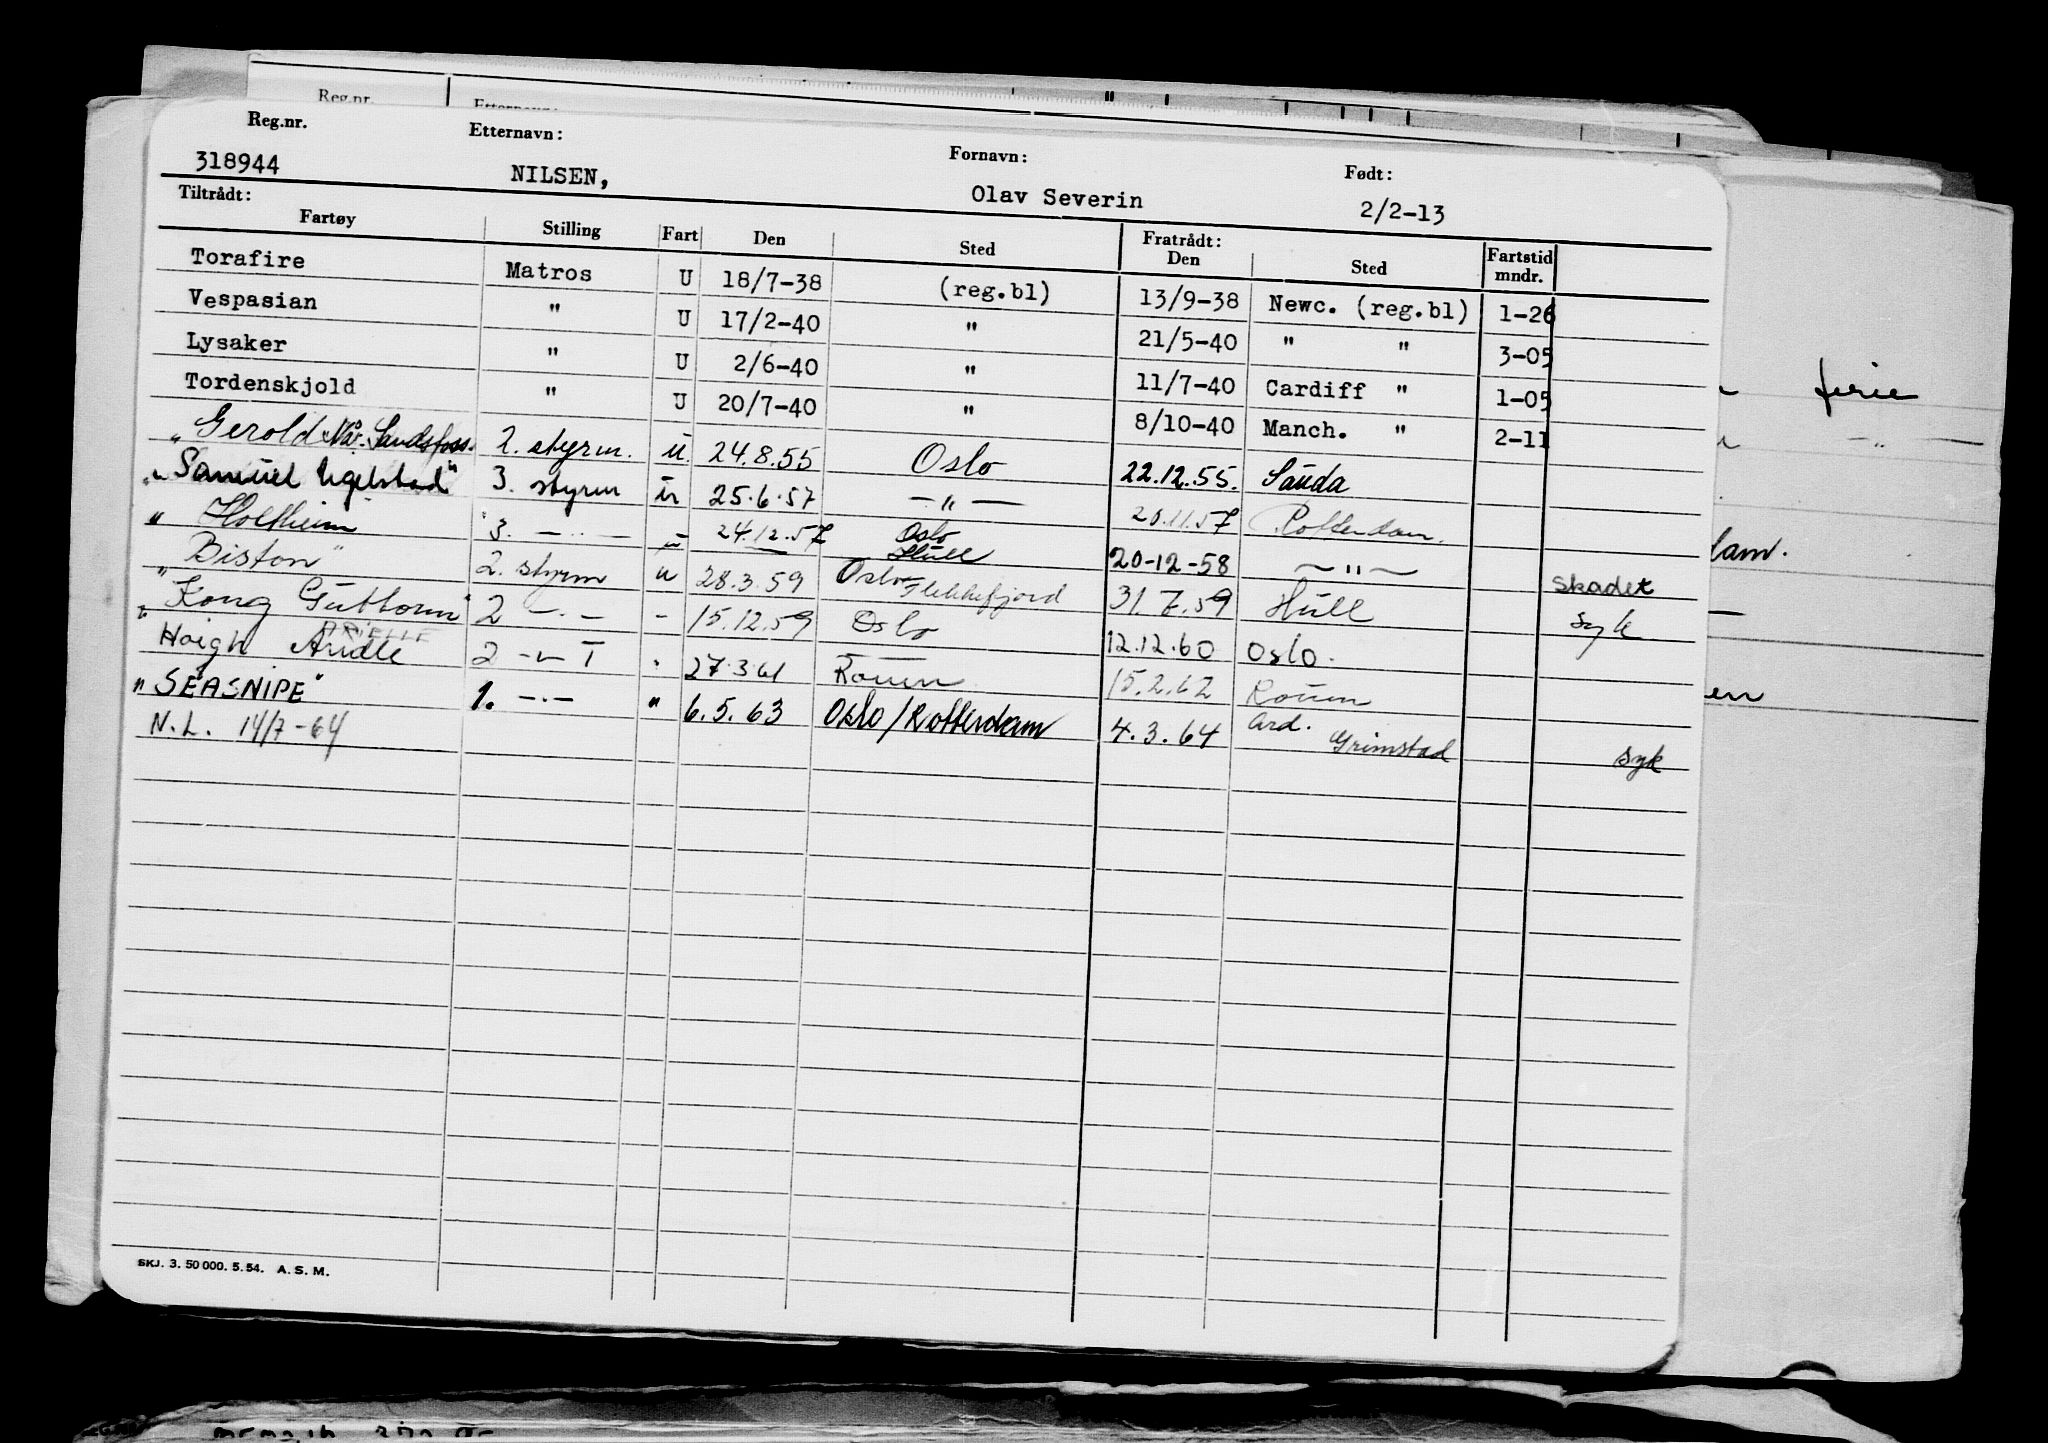 Reg.nr. Etternavn:
Reg.nr. Etternavn: Fornavn: Født:
318944 NILSEN, Olav Severin 2/2-13
Tiltrådt: Fratrådt:
Fartøy Stilling Fart Den Sted Den Sted Fartstid mndr.
Torafire Matros U 18/7-38 (reg.bl) 13/9-38 Newc. (reg.bl) 1-26
Vespasian " U 17/2-40 " 21/5-40 " " 3-05
Lysaker " U 2/6-40 " 11/7-40 Cardiff " 1-05
Tordenskjold " U 20/7-40 " 8/10-40 Manch. " 2-11
" Gerold Nå: Sandsfoss. 2. styrm. u. 24.8.55 Oslo 22.12.55. Sauda
" Samuel Ugelstad" 3. styrm u 25.6.57 — " — 20.11.57 Rotterdam.
" Holtheim 3. — " — u 24.12.57 Oslo Hull 20-12-58 — " — Skadet
" Biston" 2. styrm u 28.3.59 Oslo Flekkefjord 31.7.59 Hull syk
" Kong Guttorm" 2 — " — - 15.12.59 Oslo 12.12.60 Oslo.
Høigh Arielle ARIELLE 2 — " — I " 27.3.61 Rouen 15.2.62 Rouen
" SEASNIPE" 1. — " — " 6.5.63 Oslo/Rotterdam 4.3.64 Grimstad syk
N.L. 14/7-64
SKJ. 3. 50 000. 5. 54. A. S. M.
ferie
— " —
dam.
—
en